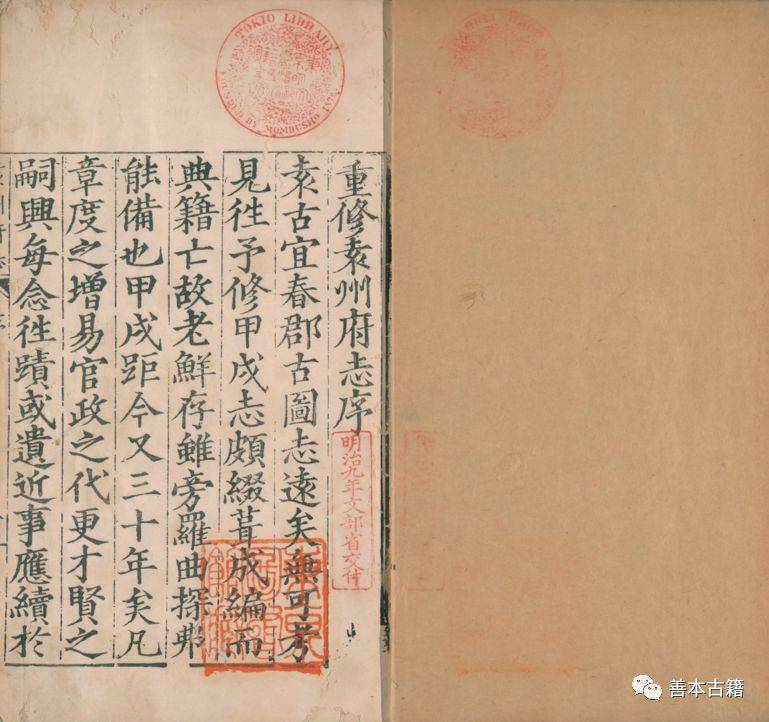 重修袁州府志序
袁古宜春郡古圖志遠矣無可考
見徃予修甲戌志頗綴葺成編而
典籍亡故老鮮存雖旁羅曲探弗
能備也甲戌距今又三十年矣凡
章度之增易官政之代更才賢之
嗣興每念徃蹟或遺近事應續於
明治九年文部省交付
TOKIO LIBRARY
FOUNDED BY MOMBUSHO 1872
善本古籍